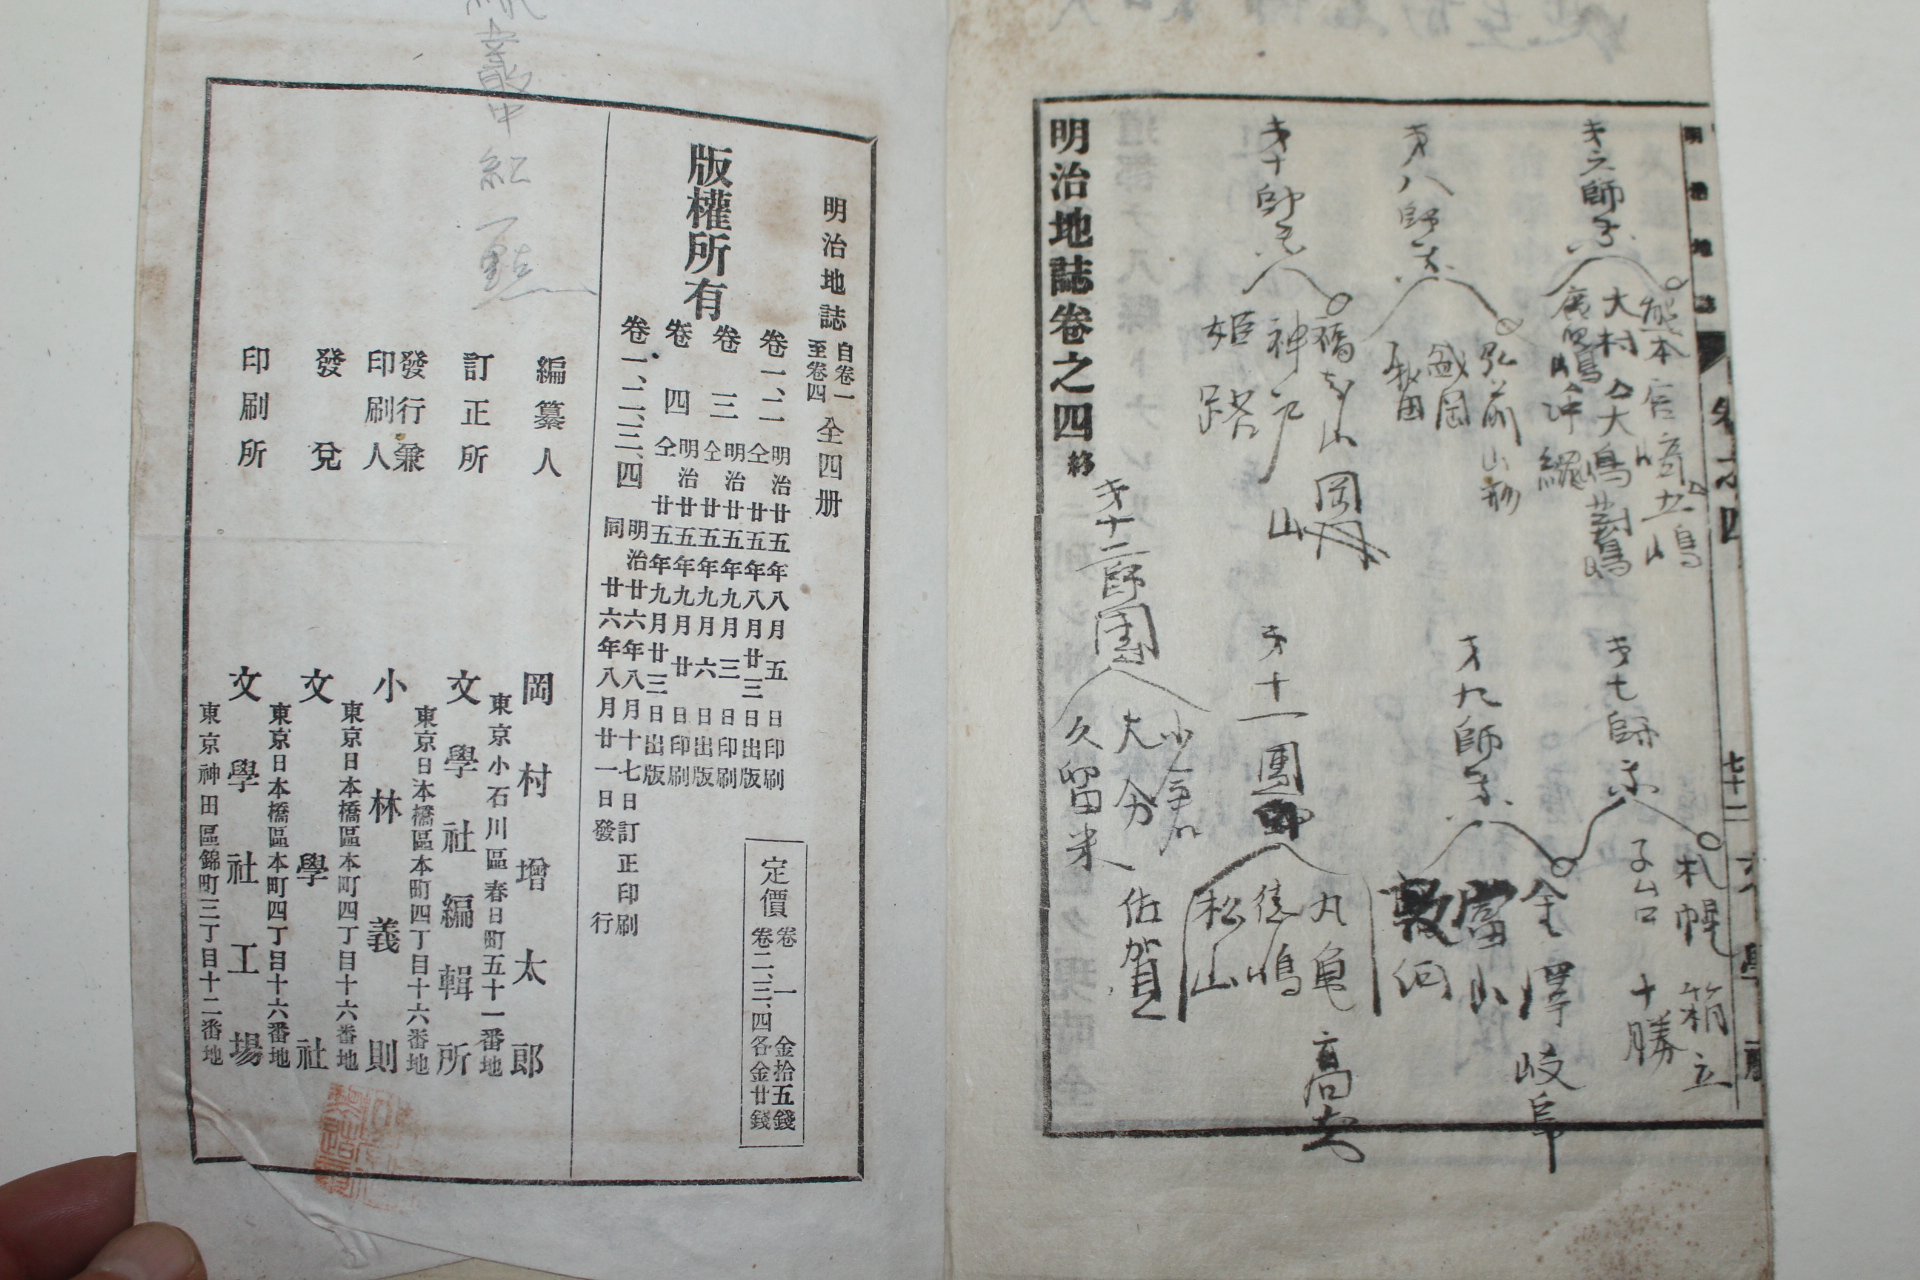 明治地誌
卷之四
七十二
文學社
才六師
熊本 宮崎 五嶋
大村 大嶋 對馬
沖繩
才八師
弘前 山形
盛岡
秋田
才十師
福知山 岡山
神戸
姫路
明治地誌卷之四終
才七師
札幌 箱立
十勝
才九師
金澤 岐阜
富山
敦
才十一團
丸亀 高知
徳嶋
松山
才十二師團
小倉
大分 佐賀
久留米
明治地誌 自卷一至卷四 全四册
版權所有
卷一、二 明治廿五年八月五日印刷
仝廿五年八月廿三日出版
卷三 明治廿五年九月三日印刷
仝廿五年九月六日出版
卷四 明治廿五年九月廿日印刷
仝廿五年九月廿三日出版
卷一、二、三、四 明治廿六年八月十七日訂正印刷
同廿六年八月廿一日發行
定價 卷一 金拾五錢
卷二、三、四各金廿錢
編纂人 岡村增太郎
東京小石川區春日町五十一番地
訂正所 文學社編輯所
東京日本橋區本町四丁目十六番地
發行兼印刷人 小林義則
東京日本橋區本町四丁目十六番地
發兌 文學社
東京日本橋區本町四丁目十六番地
印刷所 文學社工場
東京神田區錦町三丁目十二番地
叢中紅一點